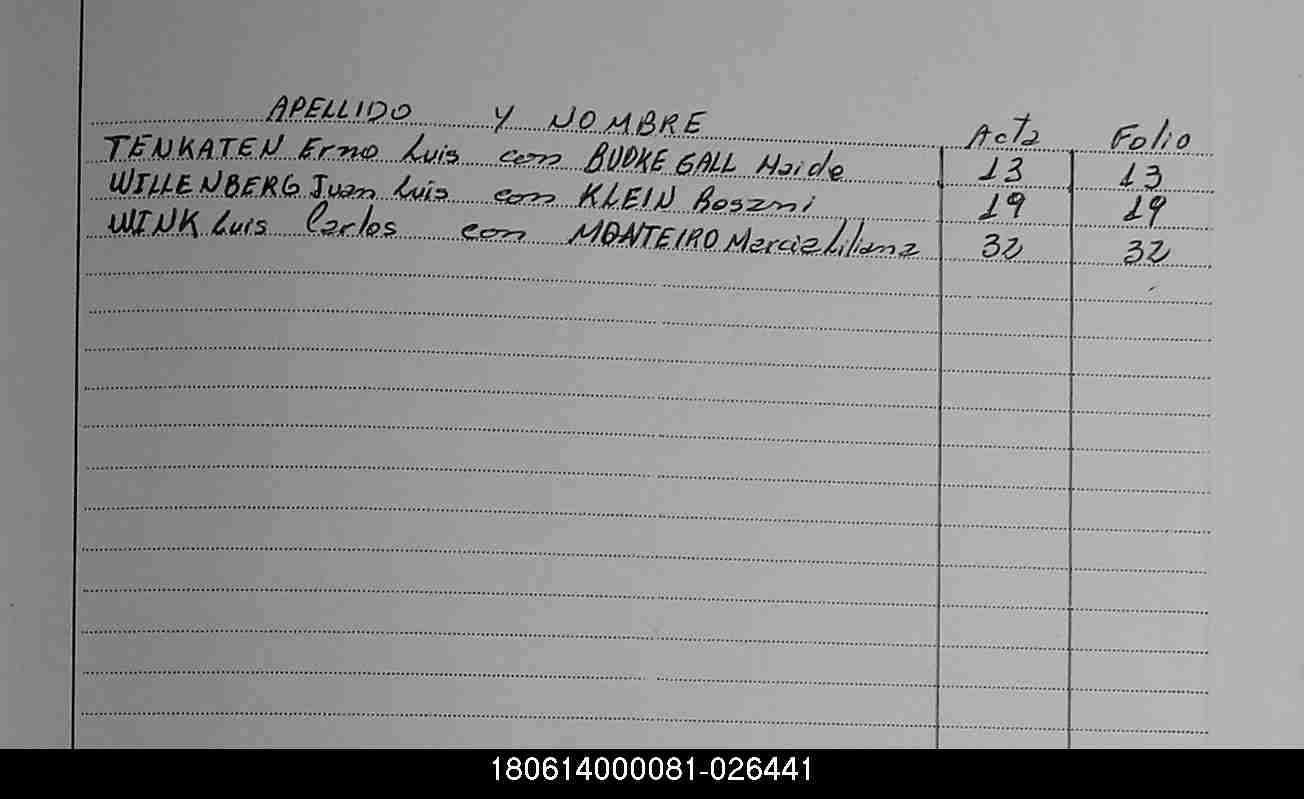 APELLIDO Y NOMBRE Acta Folio
TENKATEN Erno Luis con BUDKE GALL Haide 13 13
WILLENBERG Juan Luis con KLEIN Rosani 19 19
WINK Luis Carlos con MONTEIRO Marcia Liliana 32 32
180614000081-026441